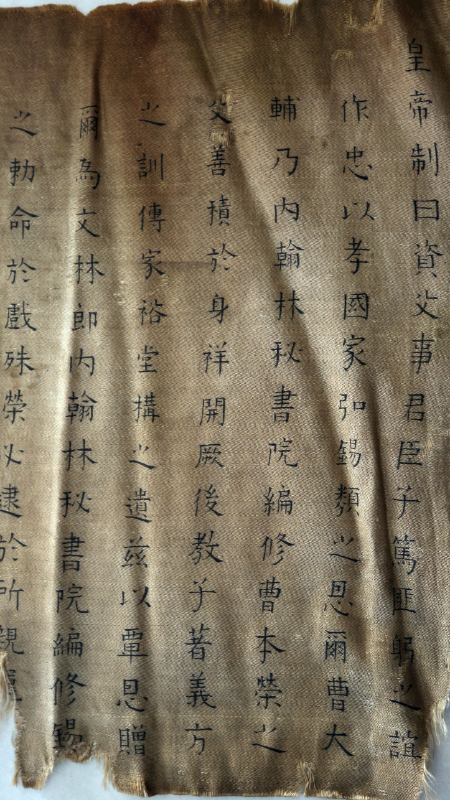 皇帝制曰資父事君臣子篤匪躬之誼
作忠以孝國家弘錫類之恩爾曹大
輔乃内翰林秘書院編修曹本榮之
父善積於身祥開厥後教子著義方
之訓傳家裕堂搆之遺茲以覃恩贈
爾為文林郎内翰林秘書院編修錫
之勅命於戲殊榮必逮於所親